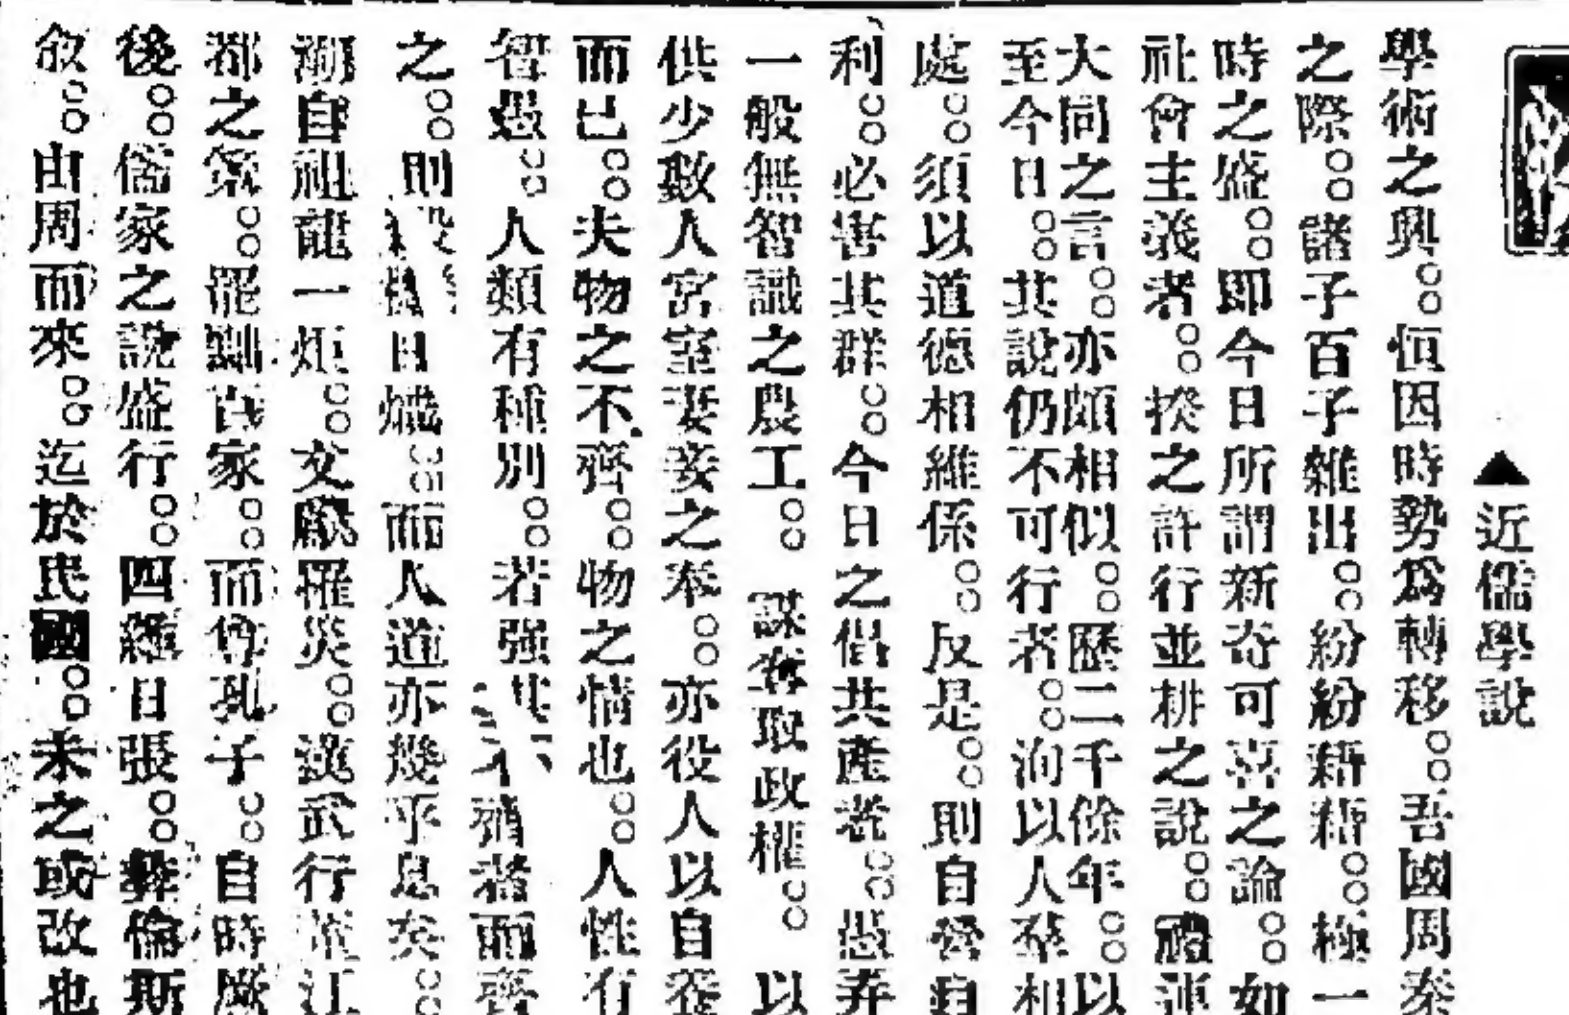 ▲近儒學説
學術之興。。恒因時勢爲轉移。。吾國周秦
之際。。諸子百子雜出。。紛紛藉藉。。極一
時之盛。。即今日所謂新奇可喜之論。。如
社會主義者。。揆之許行並耕之説。。禮運
大同之言。。亦頗相似。。歷二千餘年。。以
至今日。。其説仍不可行者。。洵以人羣相
處。。須以道德相維係。。反是。。則自營自
利。。必害其群。。今日之倡共產者。。愚弄
一般無智識之農工。。謀奪取政權。。以
供少數人宮室妻妾之奉。。亦役人以自養
而已。。夫物之不齊。。物之情也。。人性有
智愚。。人類有種別。。若強其不齊者而齊
之。。則日熾。。而人道亦幾乎息矣。。
溯自祖龍一炬。。文獻罹災。。漢武行江
都之策。。罷黜百家。。而尊孔子。。自時厥
後。。儒家之説盛行。。四維日張。。彝倫斯
敘。。由周而來。。迄於民國。。未之或改也